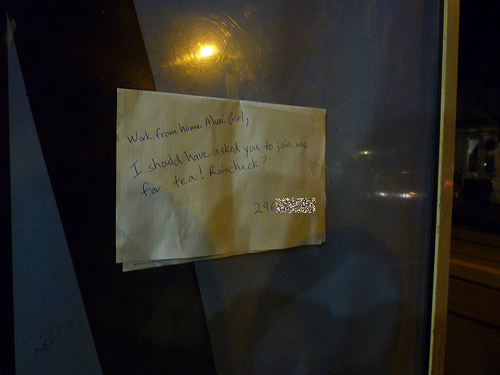 Work from home Muni Girl,
I should have asked you to join me
for tea! Raincheck?